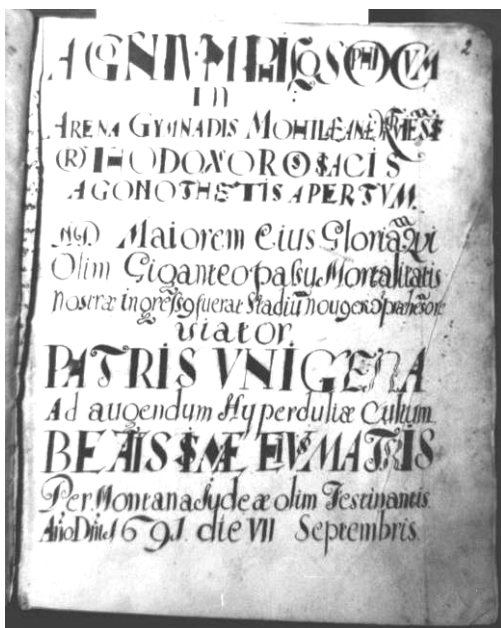 AGNIVM PHILOSOPHICVM 2
IN
ARENA GYMNADIS MOHILÆANÆ
ORTHODOXO ROSSIACIS
AGONOTHETIS APERTVM.
Ad Maiorem Eius Gloriam Qui
Olim Giganteo passu Mortalitatis
Nostræ ingressus fuerat Stadium
viator.
PATRIS VNIGENA
Ad augendum Hyperduliæ Cultum
BEATISSIMÆ EIVS MATRIS
Per Montana Iudeæ olim Festinantis.
Año Dñi 1691 die VII Septembris.